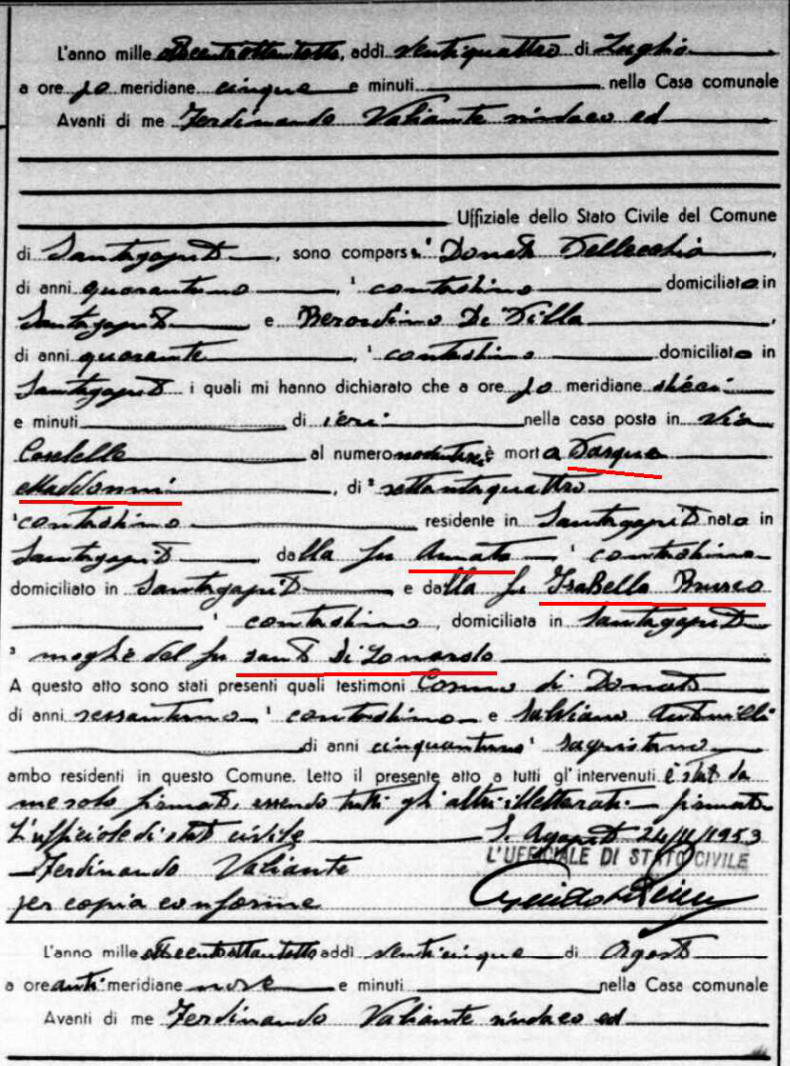 L'anno mille ottocentottantotto, addì ventiquattro di Luglio
a ore po meridiane cinque e minuti nella Casa comunale
Avanti di me Ferdinando Valiante sindaco ed
Uffiziale dello Stato Civile del Comune
di Santagapito, sono compars i Donato
di anni quarantuno, contadino domiciliato in
Santagapito e Berardino Di Lilla,
di anni quaranta, contadino domiciliato in
Santagapito i quali mi hanno dichiarato che a ore po meridiane dieci
e minuti di ieri nella casa posta in via
Castello al numero è morta Pasqua
Maddonni, di settantaquattro
contadina residente in Santagapito nata in
Santagapito dalla fu Amato contadino
domiciliato in Santagapito e dalla fu Isabella Russo
contadina, domiciliata in Santagapito
moglie del fu Santo Di Leonardo
A questo atto sono stati presenti quali testimoni Cosmo di Donato
di anni sessantuno contadino e Salviano Antonilli
di anni cinquantuno sagristano
ambo residenti in questo Comune. Letto il presente atto a tutti gl'intervenuti è stato da
me solo firmato, essendo tutti gli altri illetterati firmato
L'ufficiale di stato civile S. Agapito 24/11/1953
L'UFFICIALE DI STATO CIVILE
Ferdinando Valiante
per copia conforme
L'anno mille ottocentottantotto addì venticinque di Agosto
a ore anti meridiane nove e minuti nella Casa comunale
Avanti di me Ferdinando Valiante sindaco ed